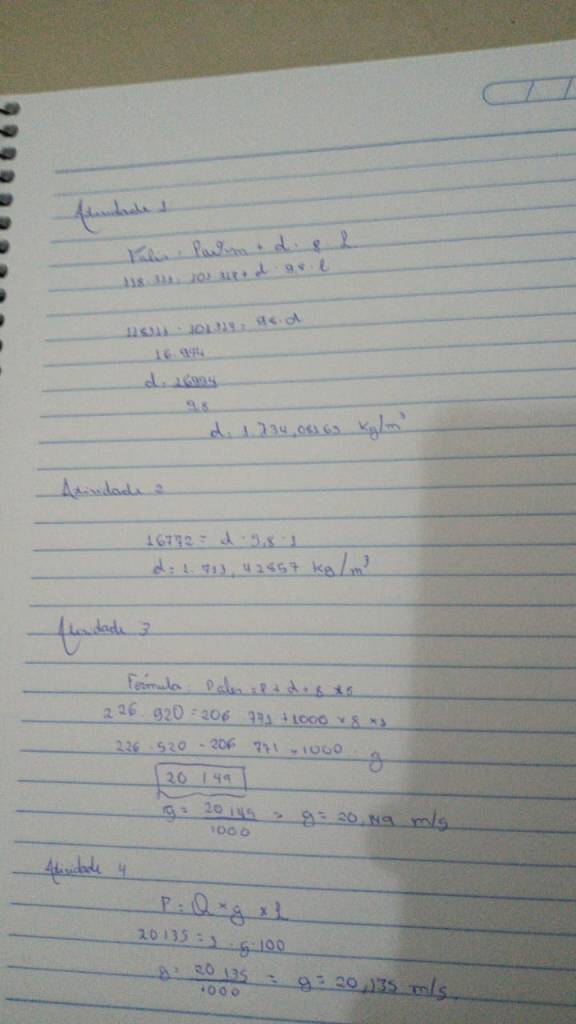 Atividade 1
+ d. g. l
+ d. 9,8. l
= 9,8. d
16.994
d = 16994
9,8
d = 1.734,08163 kg/m³
Atividade 2
16772 = d. 9,8. 1
d = 1.711, 42857 kg/m³
Atividade 3
Fórmula:
226.920 = 206 771 + 1000 x g x 1
226.920 - 206 771 = 1000. g
20 149
g = 20 149 = g = 20,149 m/s
1000
Atividade 4
P = Q x g x l
20135 = 1. g. 100
g = 20 135 = g = 20,135 m/s.
1000